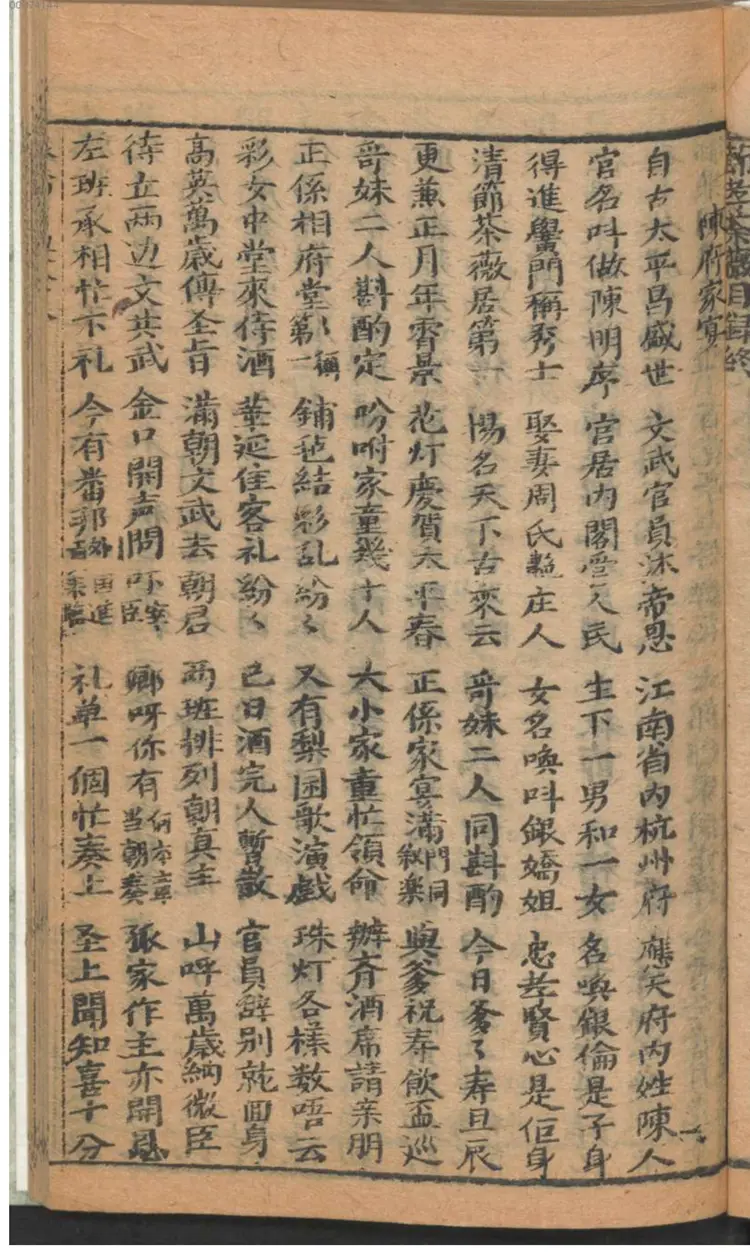 陳府家宴
自古太平昌盛世 文武官員沐帝恩 江南省內杭州府 應天府內姓陳人
官名叫做陳明序 官居內閣愛人民 生下一男和一女 名喚銀倫是子身
得進黌門稱秀士 娶妻周氏艷庄人 女名喚叫銀嬌姐 忠孝賢心是佢身
清節茶薇居第一 惕名天下古來云 哥妹二人同斟酌 今日爹〻壽旦辰
更兼正月年宵景 花灯慶賀太平春 正係家宴滿門同叙樂 與爹祝寿飲盃巡
哥妹二人斟酌定 吩咐家童幾十人 大小家童忙領命 辦齐酒席請亲朋
正係相府堂〻稱第一 鋪毡結彩乱紛〻 又有梨园歌演戲 珠灯各樣数唔云
彩女中堂來侍酒 華延住客礼紛〻 已日酒完人暫散 官員辞别就回身
高英萬歲傳圣旨 滿朝文武去朝君 兩班排列朝真主 山呼萬歲納微臣
待立兩边文共武 金口開声問吓 卿呀你有何本章當朝奏 孤家作主亦開恩
左班承相忙下礼 今有番邦外国進 礼单一個忙奏上 圣上聞知喜十分